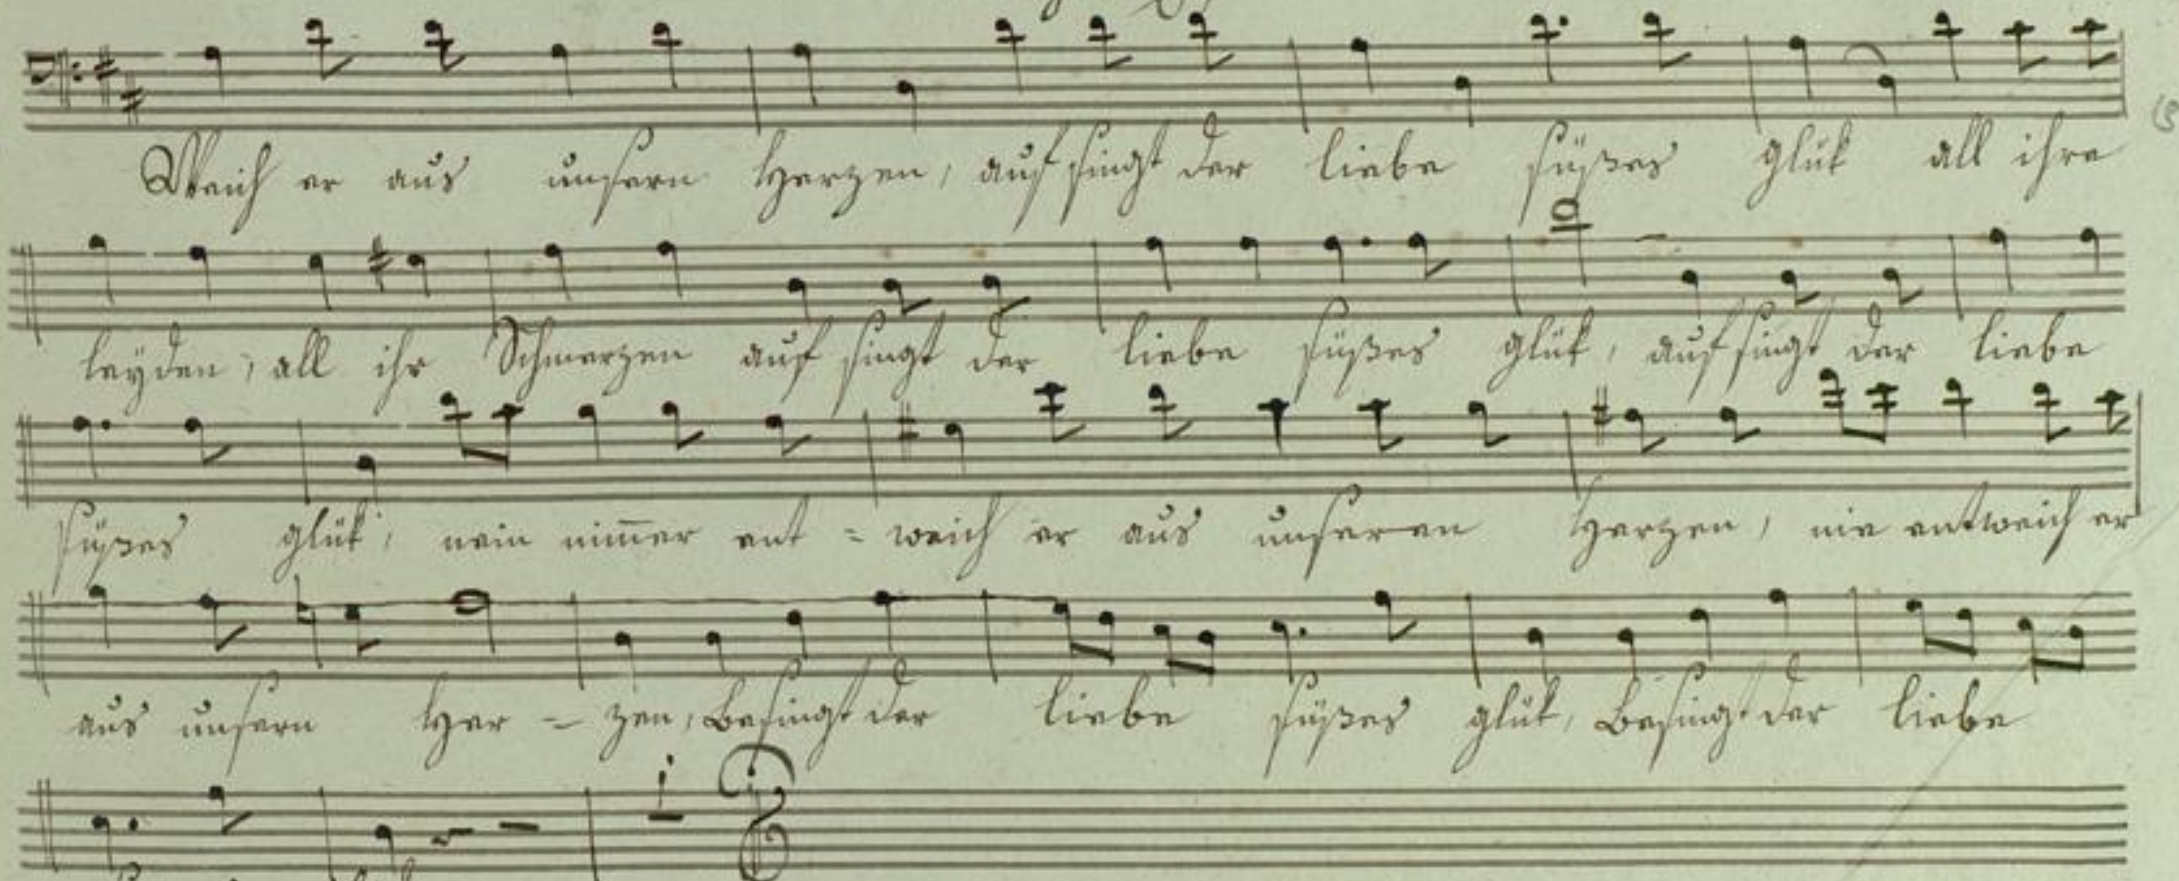 Weich er aus unsern Herzen, auf singt der liebe süßes glük all ihre
leyden, all ihr Schmerzen auf singt der liebe süßes glük, auf singt der liebe
süßes glük, nein nim̅er ent = weich er aus unseren Herzen, nie entweich er
aus unsern Her = zen, Besingt der liebe süßes glük, Besingt der liebe